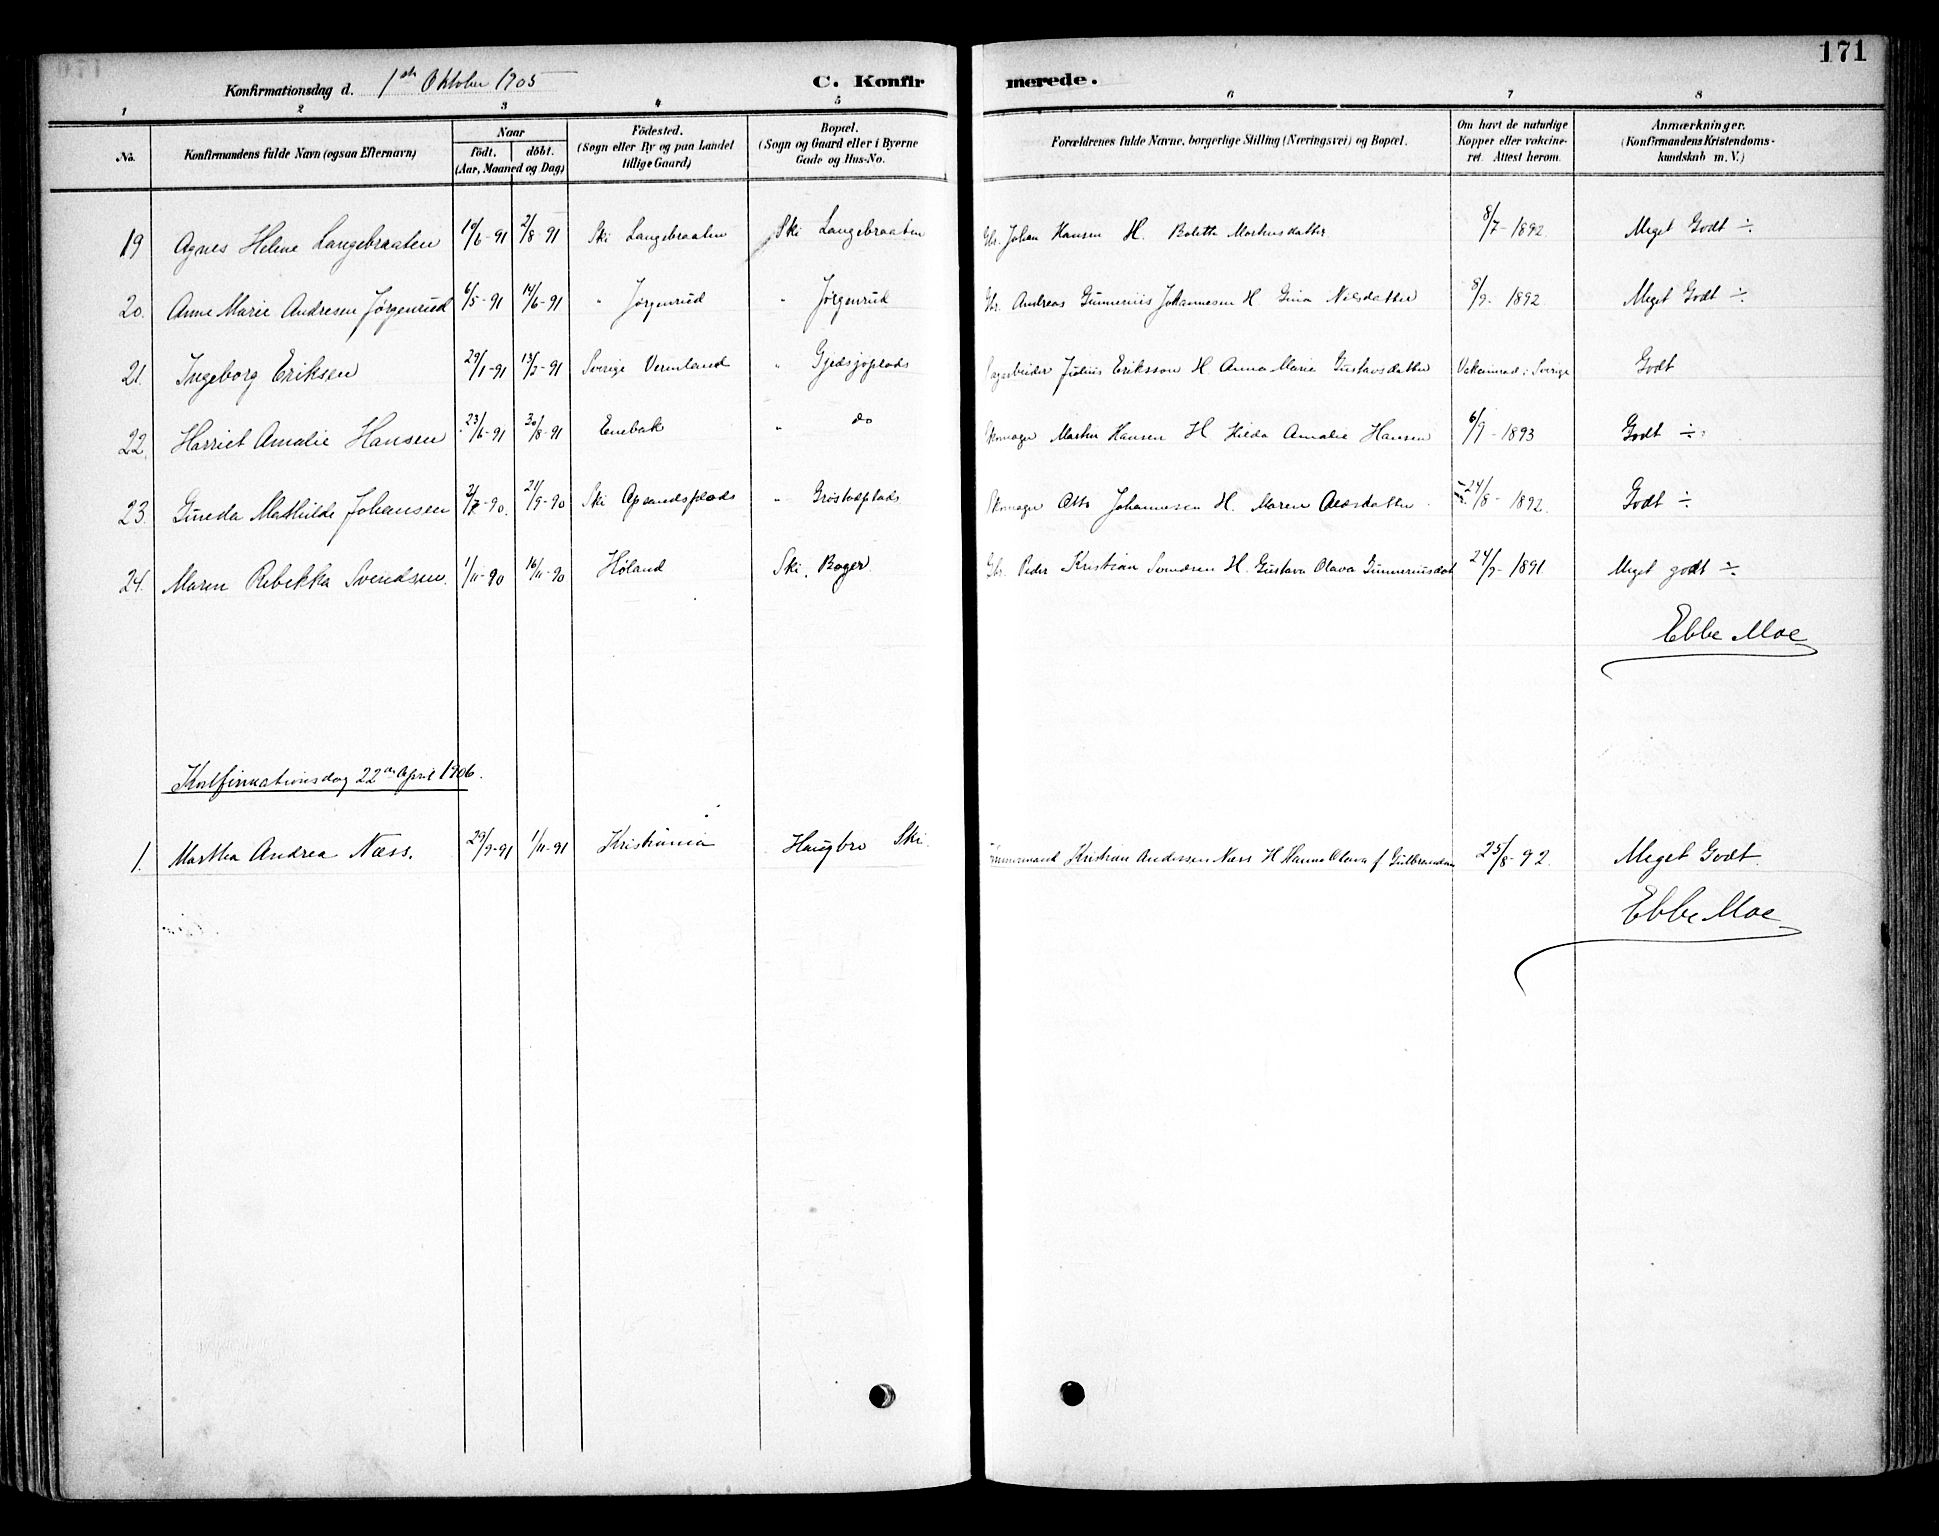 171
Konfirmationsdag d. 1ste Oktober 1905
C. Konfirmerede.
1 2 3 4 5 6 7 8
No. Konfirmandens fulde Navn (ogsaa Efternavn) Naar födt. döbt. (Aar, Maaned og Dag) Födested. (Sogn eller By og paa Landet tillige Gaard) Bopæl. (Sogn og Gaard eller i Byerne Gade og Hus-No. Forældrenes fulde Navne, borgerlige Stilling (Næringsvei) og Bopæl. Om havt de naturlige Kopper eller vakcineret. Attest herom. Anmærkninger. (Konfirmandens Kristendomskundskab m. V.)
19 Agnes Helene Langebraaten 19/6-91 2/8-91 Ski Langebraaten Ski Langebraaten Gbr. Johan Hansen H. Bolette Mathisdatter 8/7-1892. Meget Godt ÷
20. Anne Marie Andresen Jørgenrud 6/5-91 14/6-91 " Jørgenrud " Jørgenrud Gbr. Andreas Gunnerius Johannesen H Gina Nilsdatter 8/9-1892 Meget Godt ÷
21. Ingeborg Eriksen 29/1-91 13/2-91 Sverige Vermland " Gjedsjøplads Sagarbeider Julius Eriksson H Anna Marie Gustavsdatter Vakcinerad i Sverige Godt
22. Harriet Amalie Hansen 23/6-91 30/8-91 Enebak " do Skomager Martin Hansen H Hilda Amalie Hansen 6/9-1893 Godt ÷
23. Guneda Mathilde Johansen -90. 21/9-90 Ski Apsandsplads " Grøstadplads Skomager Otto Johannesen H. Maren 24/8-1892. Godt ÷
24. Maren Rebekka Svendsen. 1/11-90 16/11-90 Høland Ski, Roger Gbr. Peder Kristian Svendsen H. Gustava Olava Gunneriusdat 24/9-1891. Meget godt ÷
Ebbe Moe
Konfirmationsdag 22de April 1906.
1. Martha Andrea Næss. 29/9-91 1/11-91 Kristiania Haugbro Ski. Tømmermand Kristian Andersen Næss H Hanna Olava f Gulbrandsen 25/8-92. Meget Godt.
Ebbe Moe